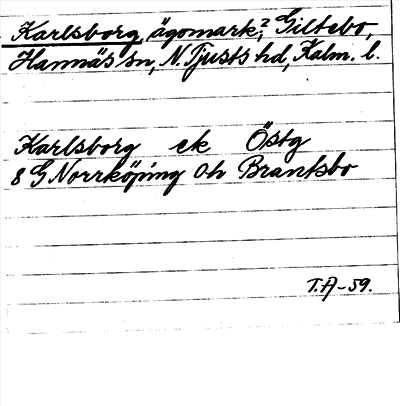 Karlsborg, ägomark,² Giltebo,
Hannäs sn, N. Tjusts hd, Kalm. l.
Karlsborg ek Östg
8 G Norrköping Oh Brantsbo
T.A-59.